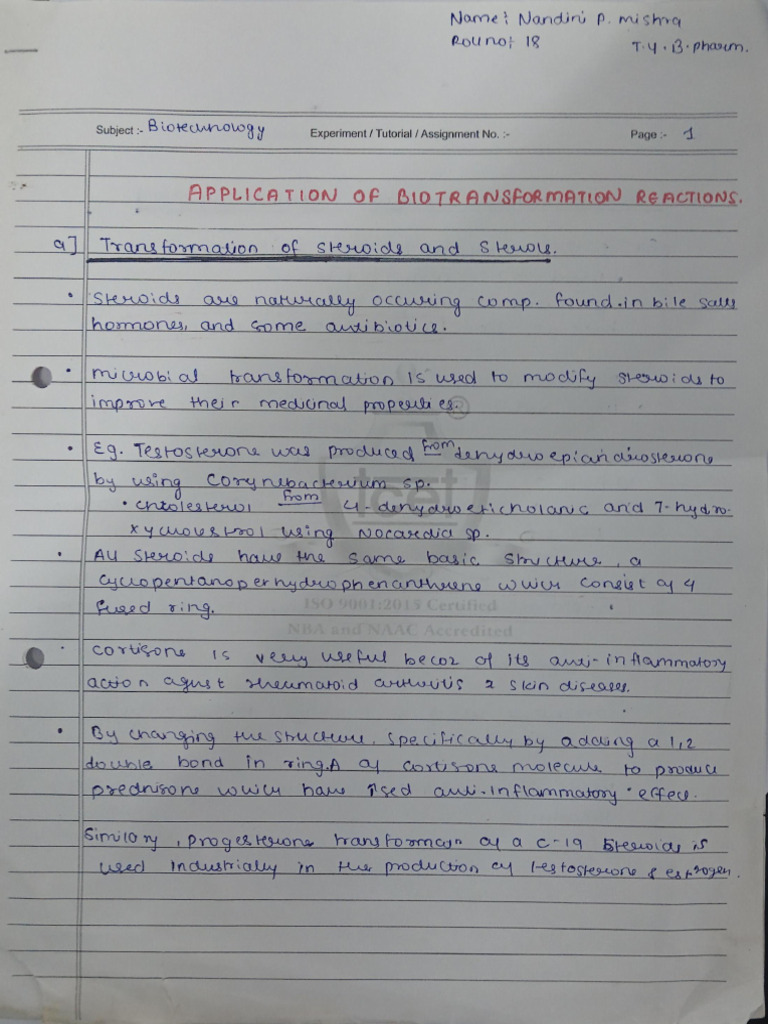 Name: Nandini P. mishra
Roll no: 18 T.Y.B.pharm.
Subject :- Biotechnology Experiment / Tutorial / Assignment No. :- Page :- 1
APPLICATION OF BIOTRANSFORMATION REACTIONS.
a] Transformation of steroids and Sterols.
• Steroids are naturally occuring comp. found in bile salts
hormones, and some antibiotics.
• microbial transformation is used to modify steroids to
improve their medicinal properties.
• Eg. Testosterone was produced from dehydroepiandrosterone
by using Corynebacterium sp.
• from 4-dehydroeticholanic and 7-hydro-
xy using Nocardia sp.
• All steroids have the same basic structure, a
cyclopentanoperhydrophenanthrene which consist of 4
fused ring.
tcet
ISO 9001:2015 Certified
NBA and NAAC Accredited
• cortisone is very useful becoz of its anti-inflammatory
action agust rheumatoid arthritis & skin diseases.
• By changing the structure, specifically by adding a 1,2
double bond in ring.A of cortisone molecule to produce
prednisone which have ↑sed anti-inflammatory effect.
Similary, progesterone of a C-19 steroids is
used industrially in the production of testosterone & estrogen.